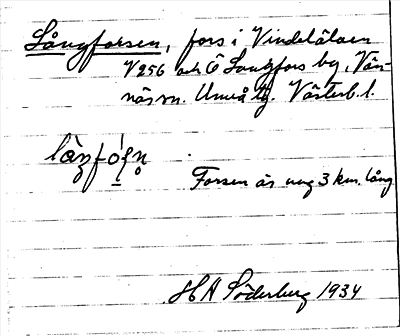 Långforsen, fors i Vindelälven
V 256 och Ö Långfors by, Vän-
näs sn. Umeå tg. Västerb. l.
Forsen är ung 3 km. lång
HA Söderberg 1934